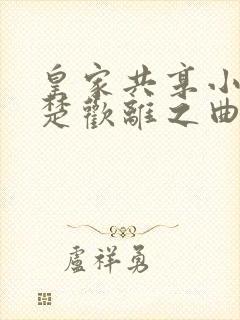 皇家共享小
楚歡離之曲
盧祥勇